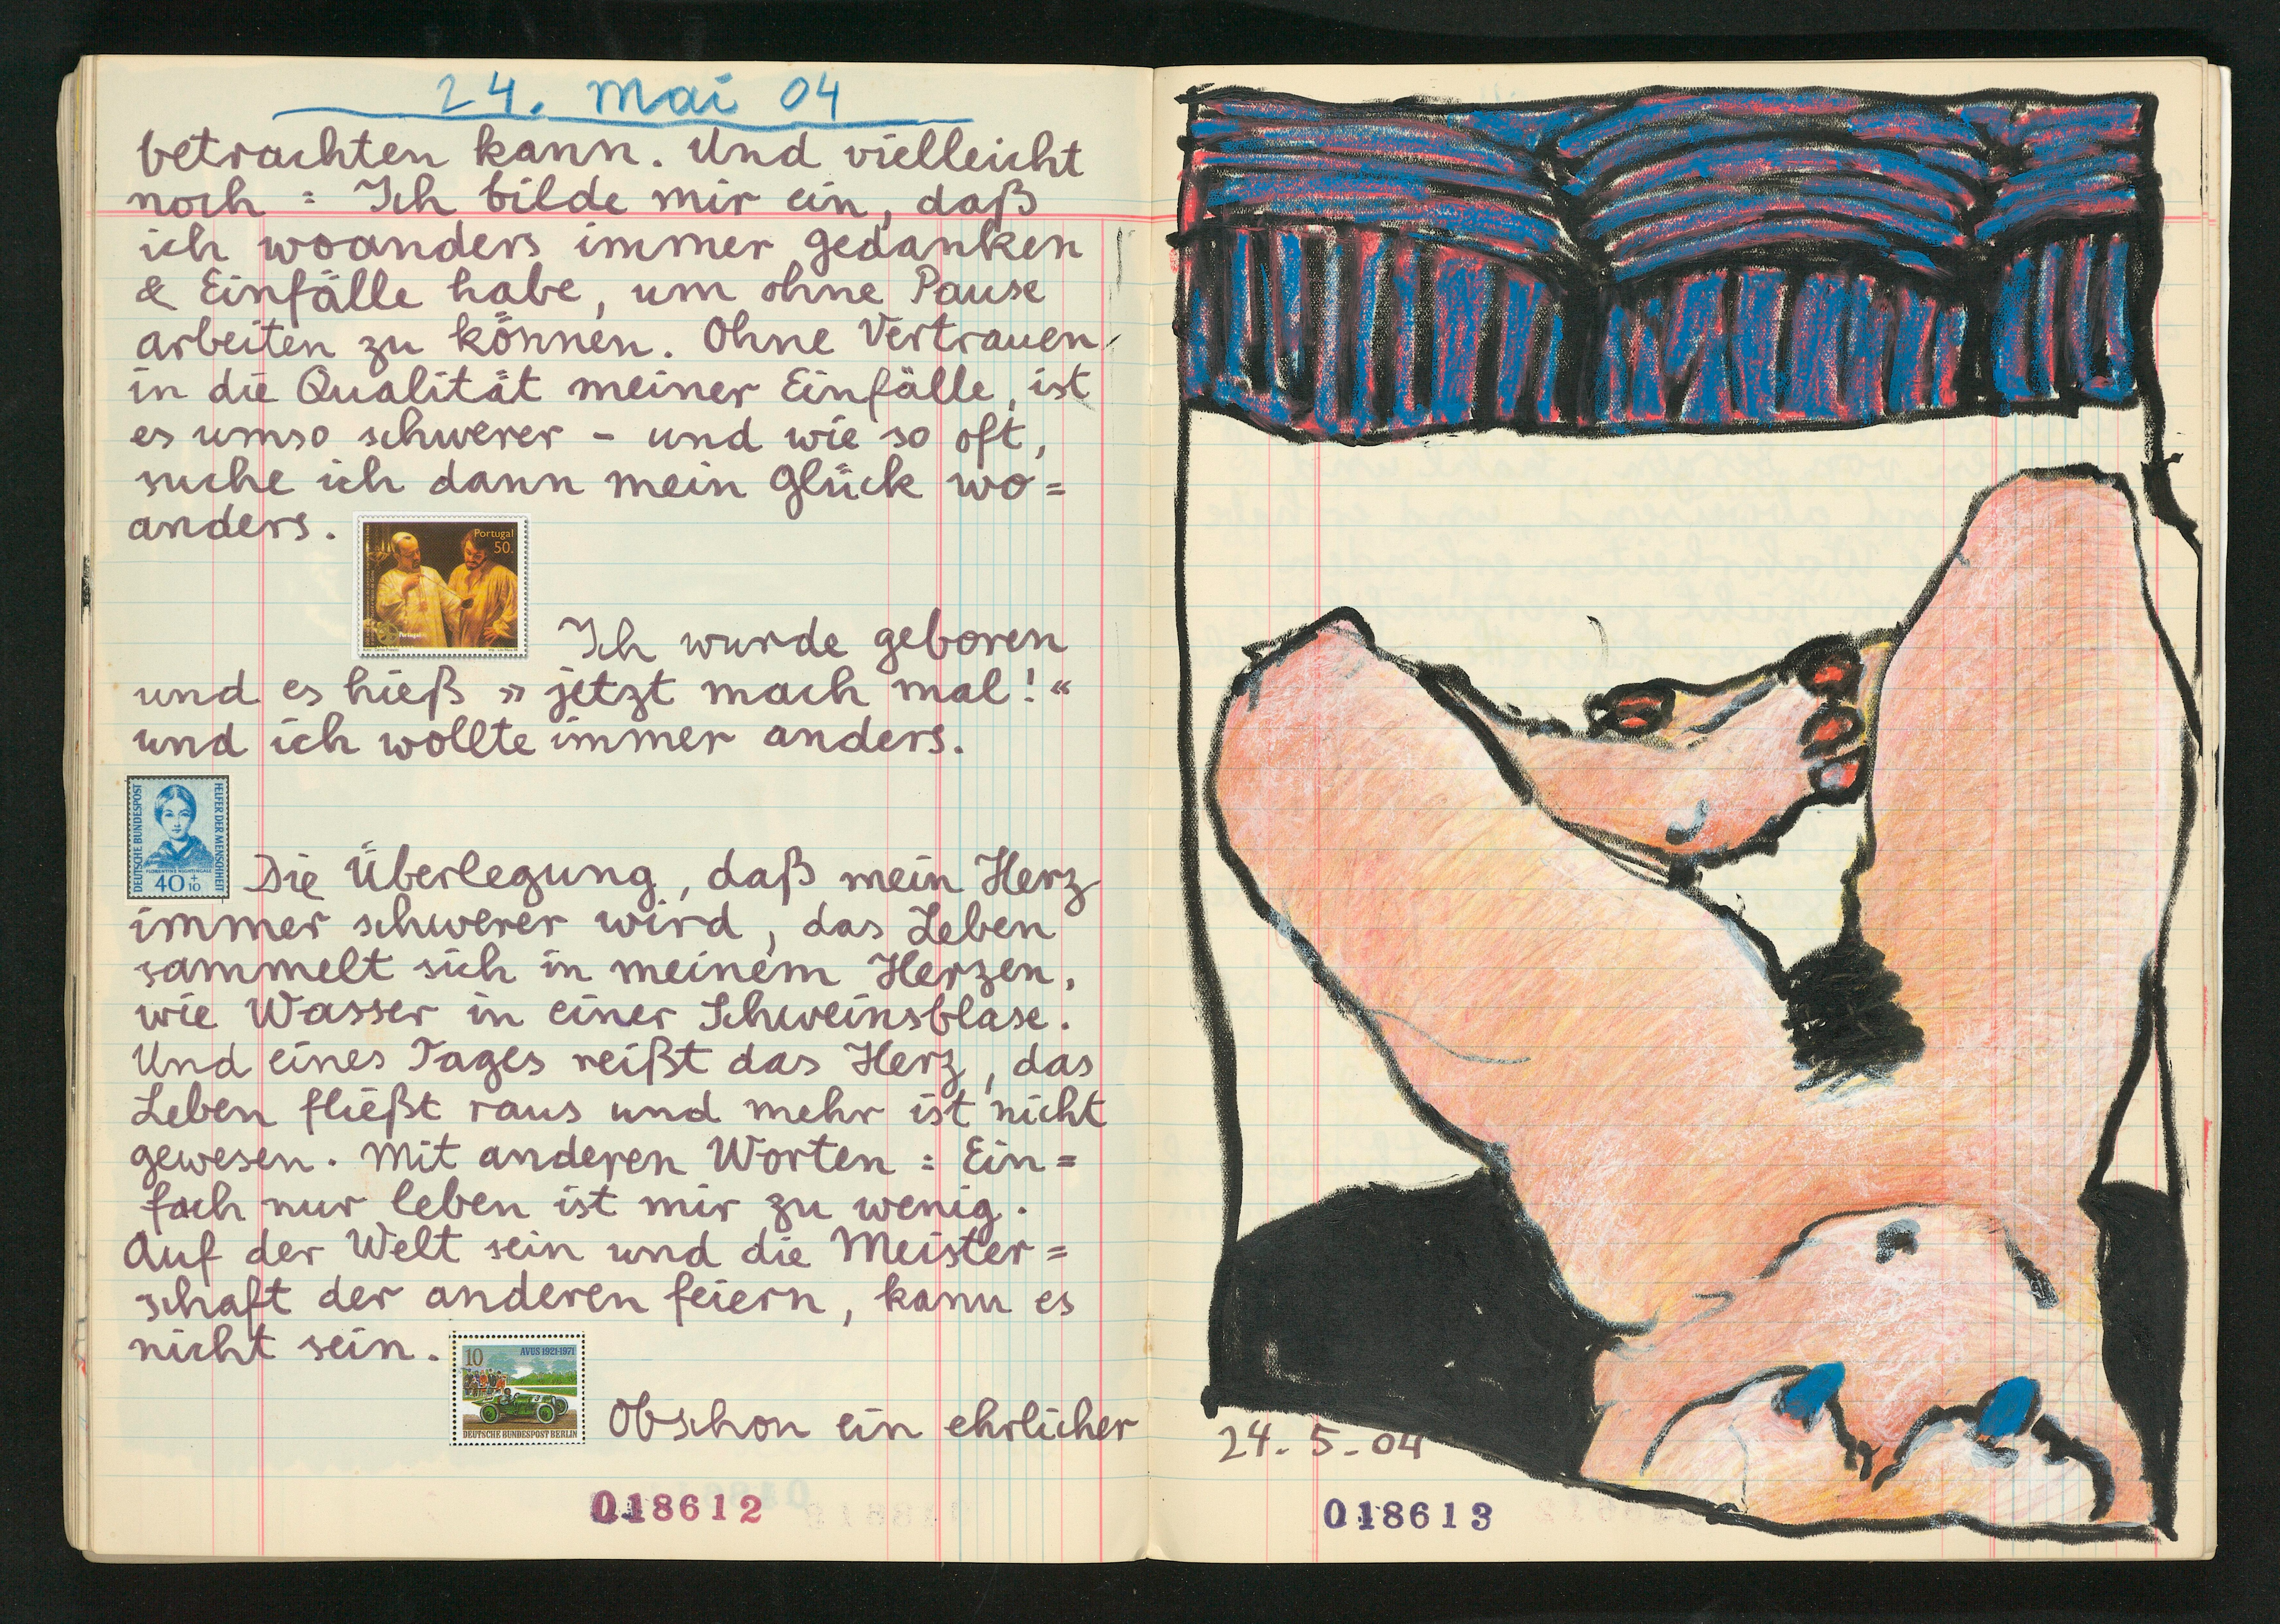 24. Mai 04
betrachten kann. Und vielleicht
noch : Ich bilde mir ein, daß
ich woanders immer Gedanken
& Einfälle habe, um ohne Pause
arbeiten zu können. Ohne Vertrauen
in die Qualität meiner Einfälle, ist
es umso schwerer – und wie so oft,
suche ich dann mein Glück wo=
anders.
Portugal
50.
Portugal
Ich wurde geboren
und es hieß » jetzt mach mal! «
und ich wollte immer anders.
DEUTSCHE BUNDESPOST
HELFER DER MENSCHHEIT
FLORENTINE NIGHTINGALE
40 + 10
Die Überlegung, daß mein Herz
immer schwerer wird, das Leben
sammelt sich in meinem Herzen,
wie Wasser in einer Schweinsblase.
Und eines Tages reißt das Herz, das
Leben fließt raus und mehr ist nicht
gewesen. Mit anderen Worten : Ein=
fach nur leben ist mir zu wenig.
Auf der Welt sein und die Meister=
schaft der anderen feiern, kann es
nicht sein.
10
AVUS 1921-1971
DEUTSCHE BUNDESPOST BERLIN
Obschon ein ehrlicher
018612
24. 5. 04
018613